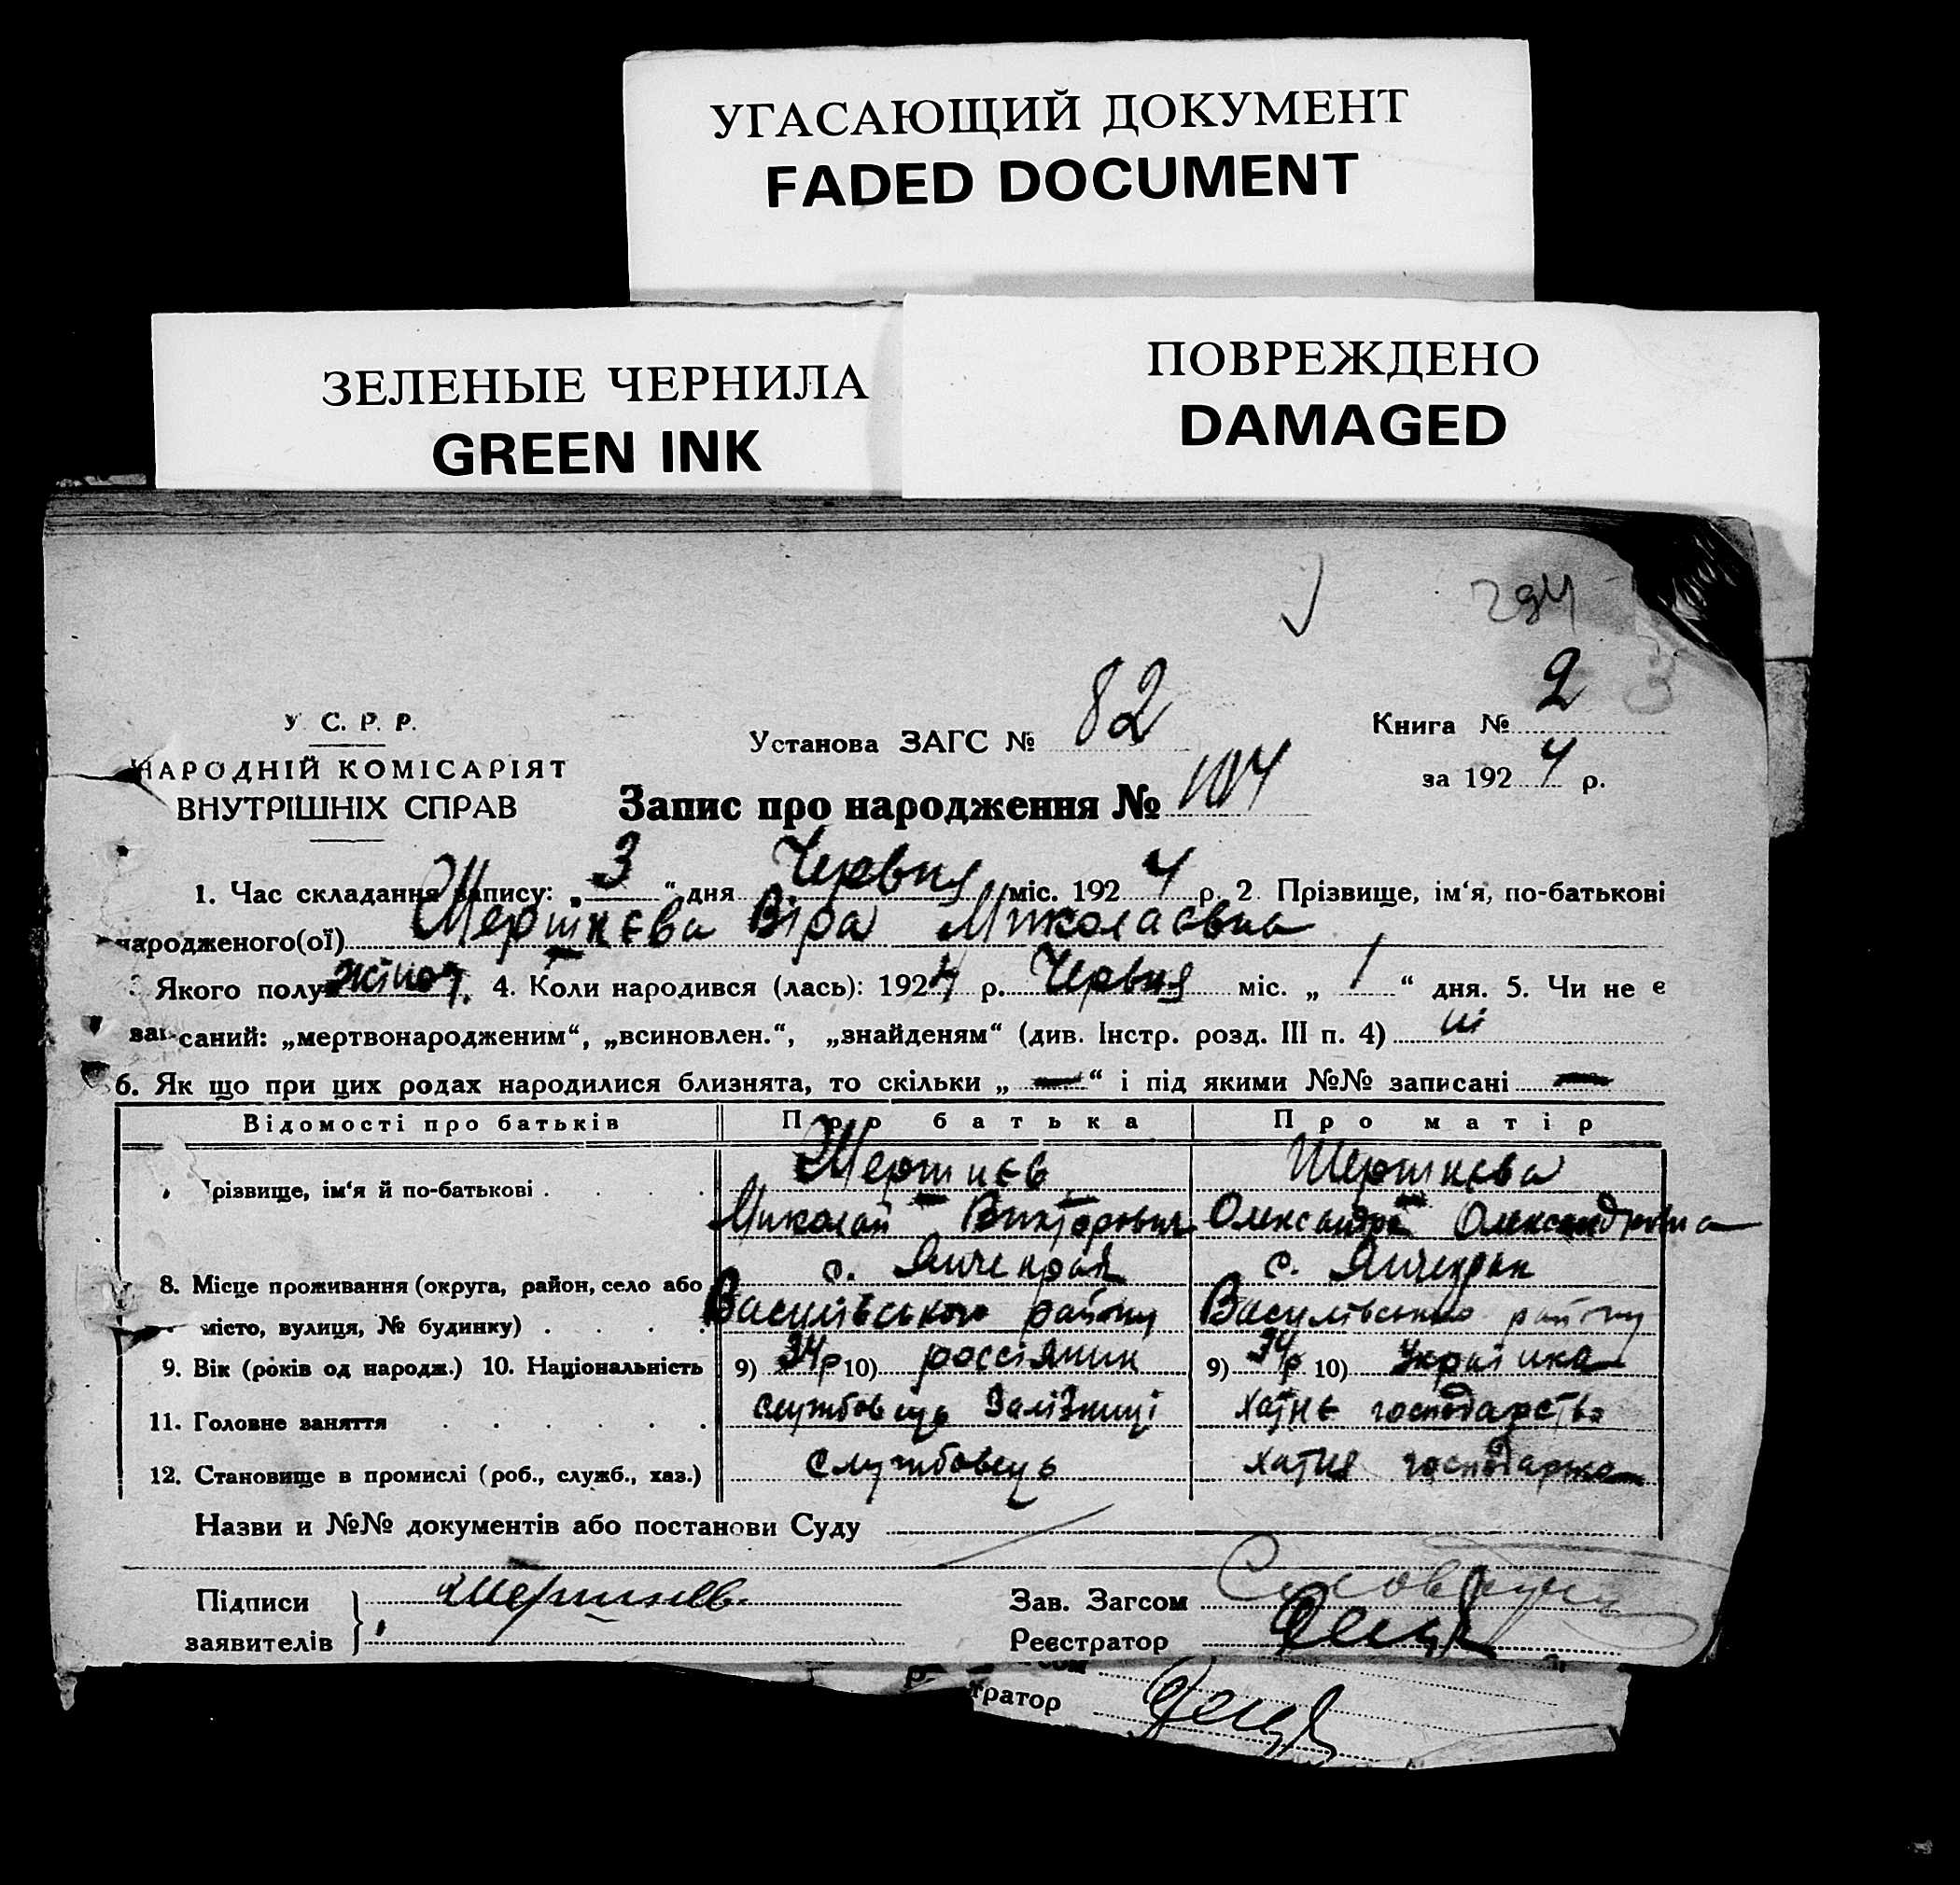 УГАСАЮЩИЙ ДОКУМЕНТ
FADED DOCUMENT
ЗЕЛЕНЫЕ ЧЕРНИЛА
GREEN INK
ПОВРЕЖДЕНО
DAMAGED
294
У. С. Р. Р.
НАРОДНІЙ КОМІСАРІЯТ
ВНУТРІШНІХ СПРАВ
Установа ЗАГС № 82
Книга № 2
за 1924 р.
Запис про народження № 104
1. Час складання запису: „3“ дня Червня міс. 1924 р. 2. Прізвище, ім‘я, по-батькові
народженого(ої) Віра Миколаєвна
3 Якого полу жіноч. 4. Коли народився (лась): 1924 р. Червня міс. „1“ дня. 5. Чи не є
записаний: „мертвонародженим“, „всиновлен.“, „знайденям“ (див. Інстр. розд. III п. 4) ні
6. Як що при цих родах народилися близнята, то скільки „ — “ і під якими №№ записані —
Відомості про батьків Про батька Про матір
різвище, ім‘я й по-батькові . . . .
Миколай Вікторович Олександра Олександровна
с. Янчекрак с. Янчекрак
8. Місце проживання (округа, район, село або
місто, вулиця, № будинку) . . . . Василівського району Василівського району
9. Вік (років од народж.) 10. Національність 9) 34 р 10) россіянин 9) 34 р 10) Українка
11. Головне заняття . . . . . службовець Залізниці хатнє господарство
12. Становище в промислі (роб., служб., хаз.) Службовець хатня господарка
Назви и №№ документів або постанови Суду
Підписи
заявителів
Зав. Загсом
Реєстратор
тратор